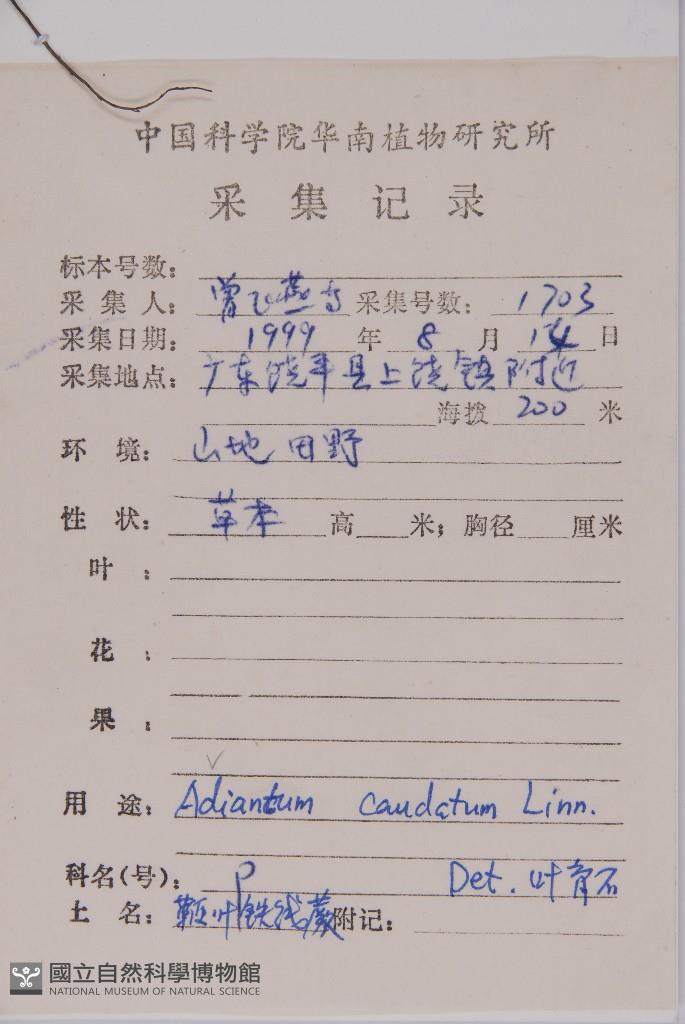 中国科学院华南植物研究所
采集记录
标本号数:
采集人: 曾飞燕等 采集号数: 1703
采集日期: 1999 年 8 月 14 日
采集地点: 广东饶平县上饶镇附近
海拨 200 米
环境: 山地田野
性状: 草本 高 米; 胸径 厘米
叶:
花:
果:
用途: Adiantum caudatum Linn.
科名(号): P Det. 叶育石
土名: 鞭叶铁线蕨 附记:
國立自然科學博物館
NATIONAL MUSEUM OF NATURAL SCIENCE